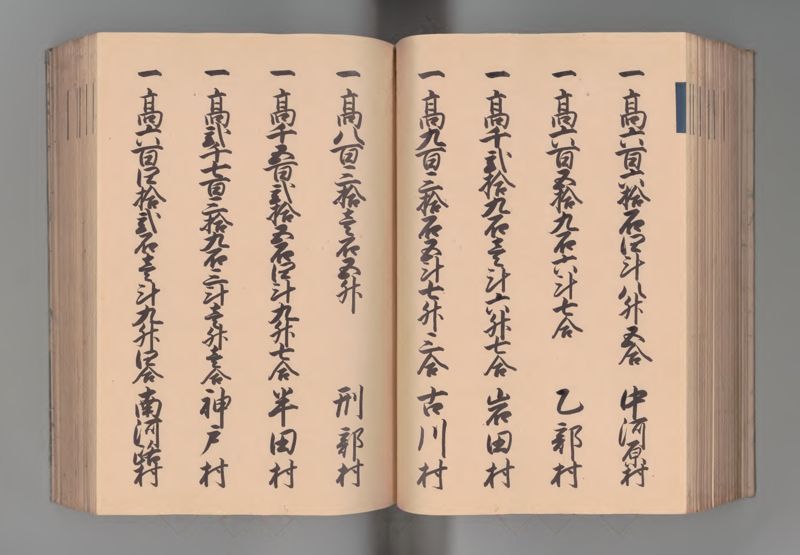 一高六百六拾石四斗八升五合 中河原村
一高六百五拾九石六斗七合 乙部村
一高千弐拾九石壱斗六升七合 岩田村
一高九百三拾石五斗七升三合 古川村
一高八百三拾壱石五升 刑部村
一高千五百弐拾五石四斗九升七合 半田村
一高弐千七百三拾九石三斗壱升壱合 神戸村
一高六百四拾弐石壱斗九升四合 南河路村